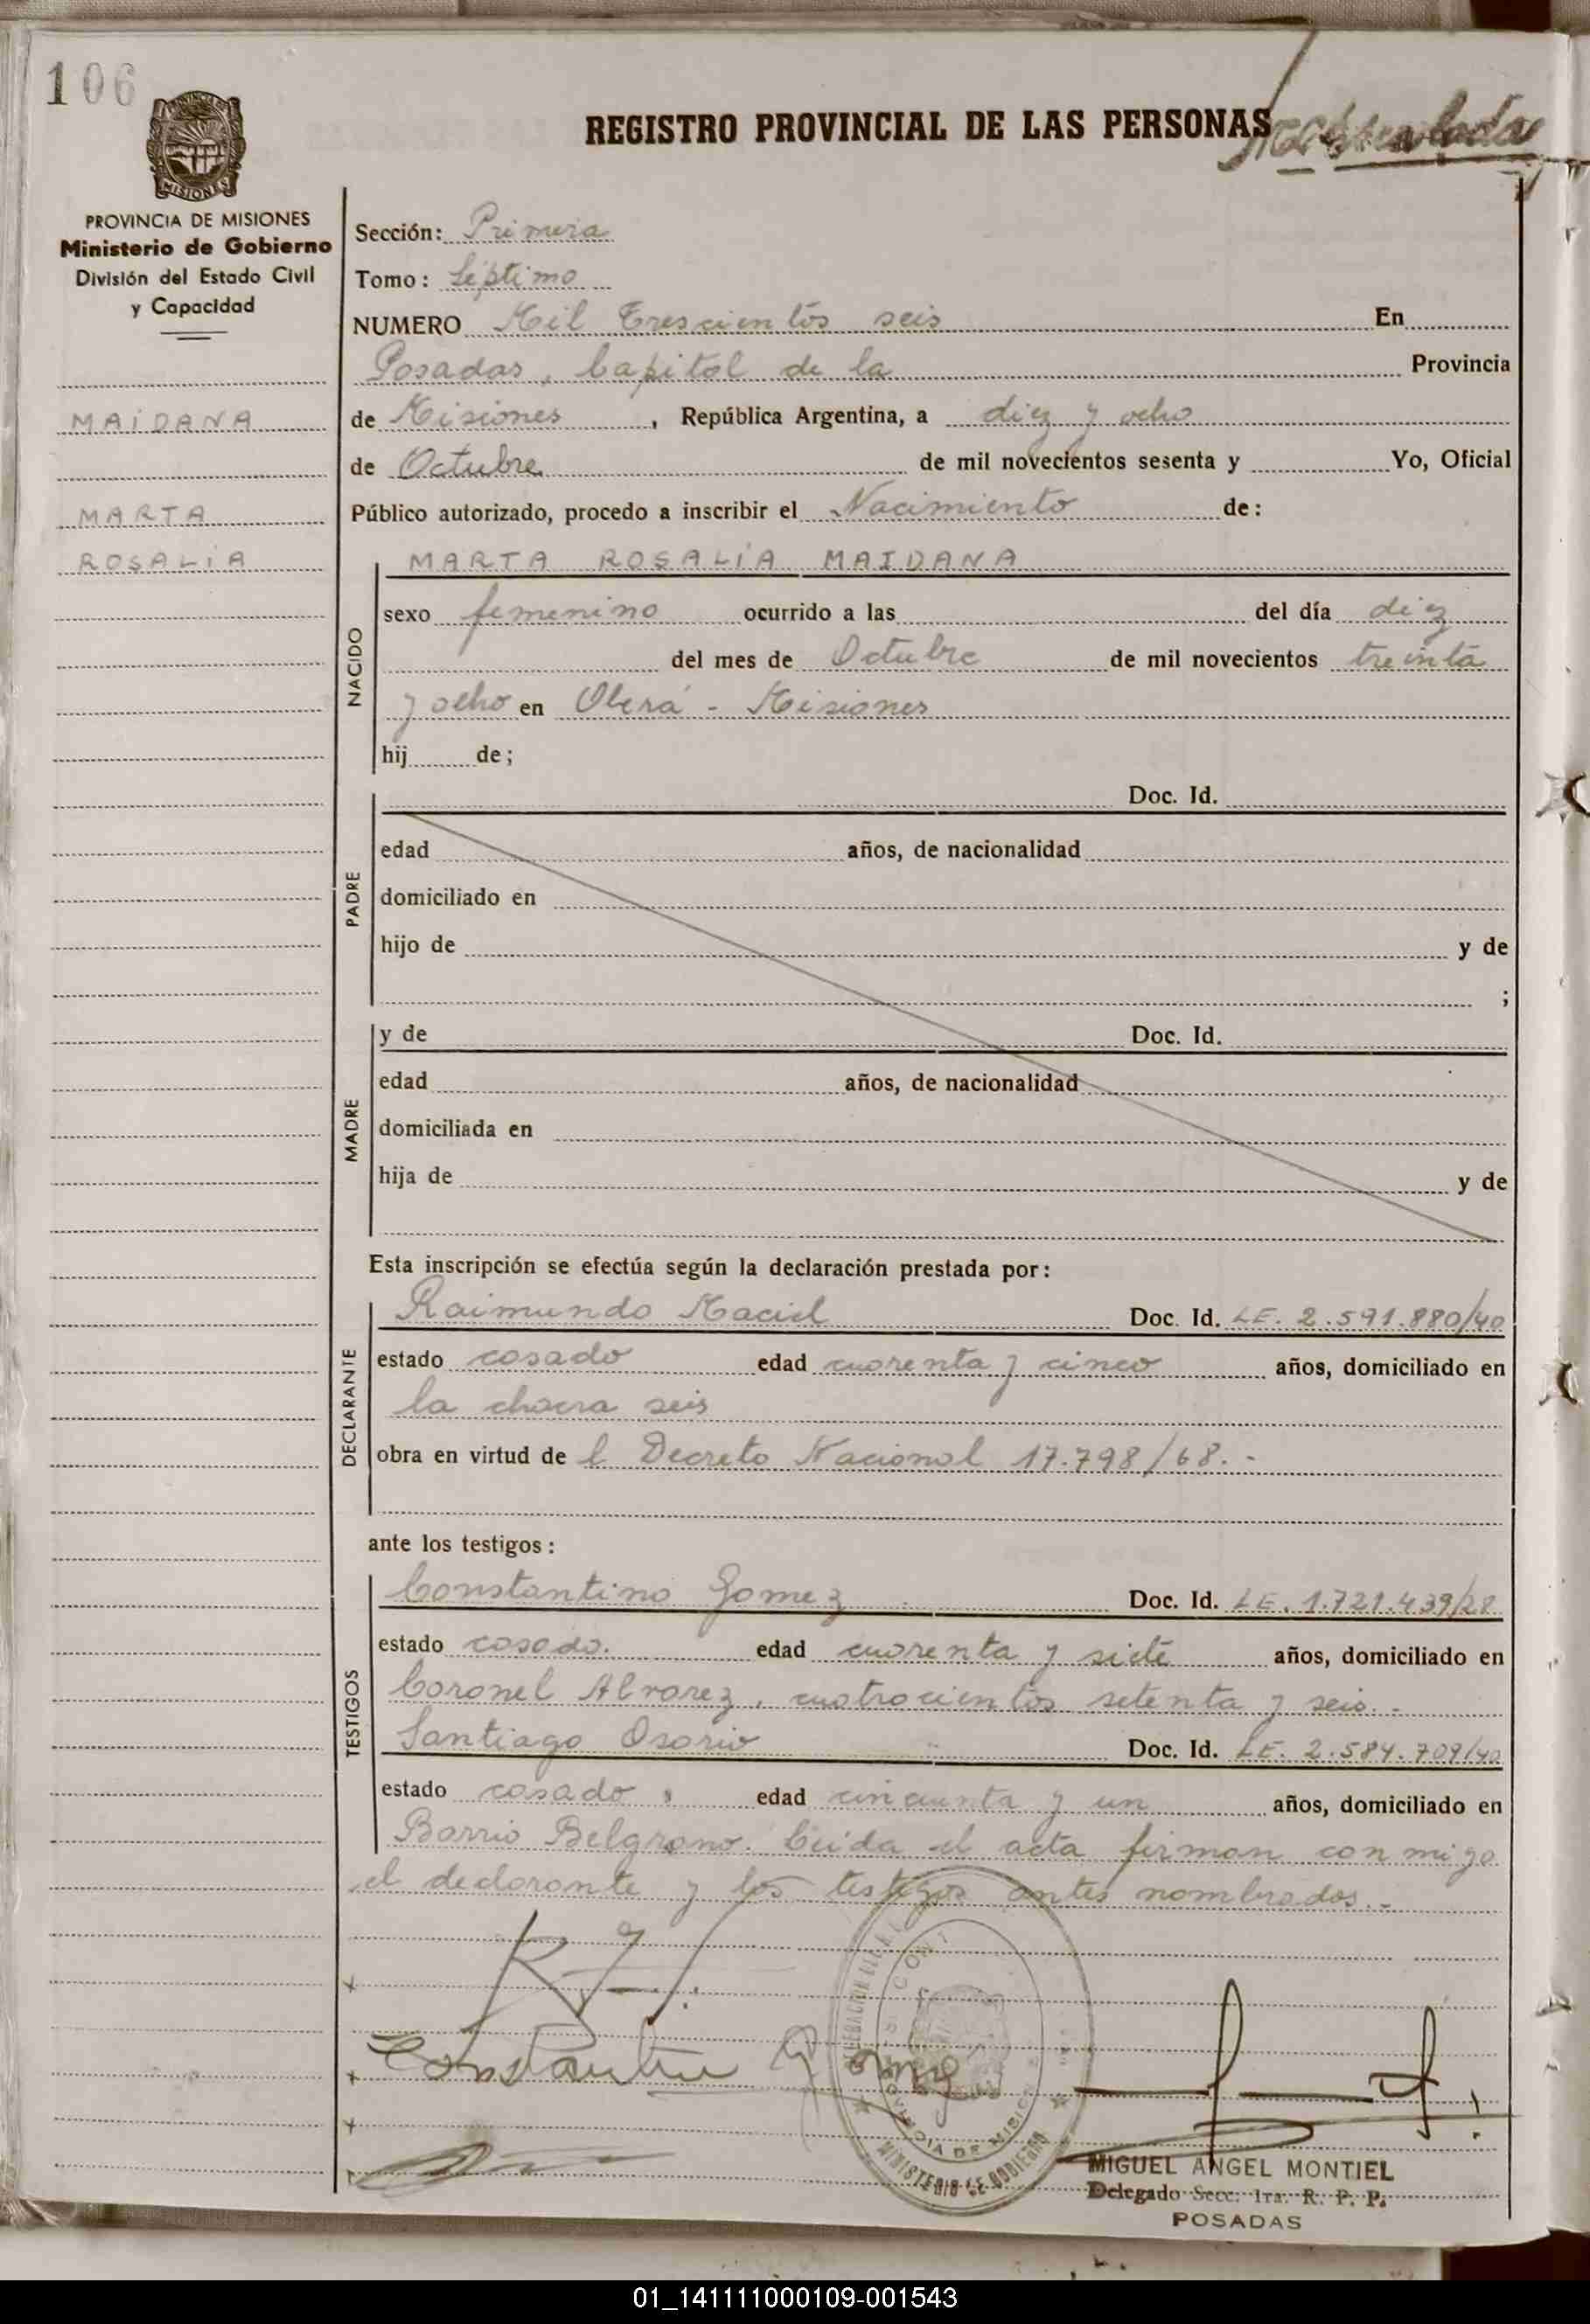 106
REGISTRO PROVINCIAL DE LAS PERSONAS
MISIONES
PROVINCIA DE MISIONES
Ministerio de Gobierno
División del Estado Civil
y Capacidad
MAIDANA
MARTA
ROSALÍA
Sección: Primera
Tomo: Séptimo
NUMERO Mil Trescientos seis En
Posadas, Capital de la Provincia
de Misiones, República Argentina, a diez y ocho
de Octubre de mil novecientos sesenta y Yo, Oficial
Público autorizado, procedo a inscribir el Nacimiento de:
NACIDO
MARTA ROSALÍA MAIDANA
sexo femenino ocurrido a las del día diez
del mes de Octubre de mil novecientos treinta
y ocho en Oberá - Misiones
hij de;
PADRE
Doc. Id.
edad años, de nacionalidad
domiciliado en
hijo de y de
;
MADRE
y de Doc. Id.
edad años, de nacionalidad
domiciliada en
hija de y de
Esta inscripción se efectúa según la declaración prestada por:
DECLARANTE
Raimundo Maciel Doc. Id. LE. 2.591.880/40
estado casado edad cuarenta y cinco años, domiciliado en
la chacra seis
obra en virtud de l Decreto Nacional 17.798/68.-
ante los testigos:
TESTIGOS
Constantino Gomez Doc. Id. LE. 1.721.439/28
estado casado. edad cuarenta y siete años, domiciliado en
Coronel Alvarez, cuatrocientos setenta y seis.-
Santiago Osorio Doc. Id. LE. 2.584.709/40
estado casado, edad cincuenta y un años, domiciliado en
Barrio Belgrano. Leída el acta firman conmigo
el declarante y los testigos antes nombrados.-
Constantino Gomez
PROVINCIA DE MISIONES
MINISTERIO DE GOBIERNO
MIGUEL ANGEL MONTIEL
Delegado Secc. 1ra. R. P. P.
POSADAS
01_141111000109-001543